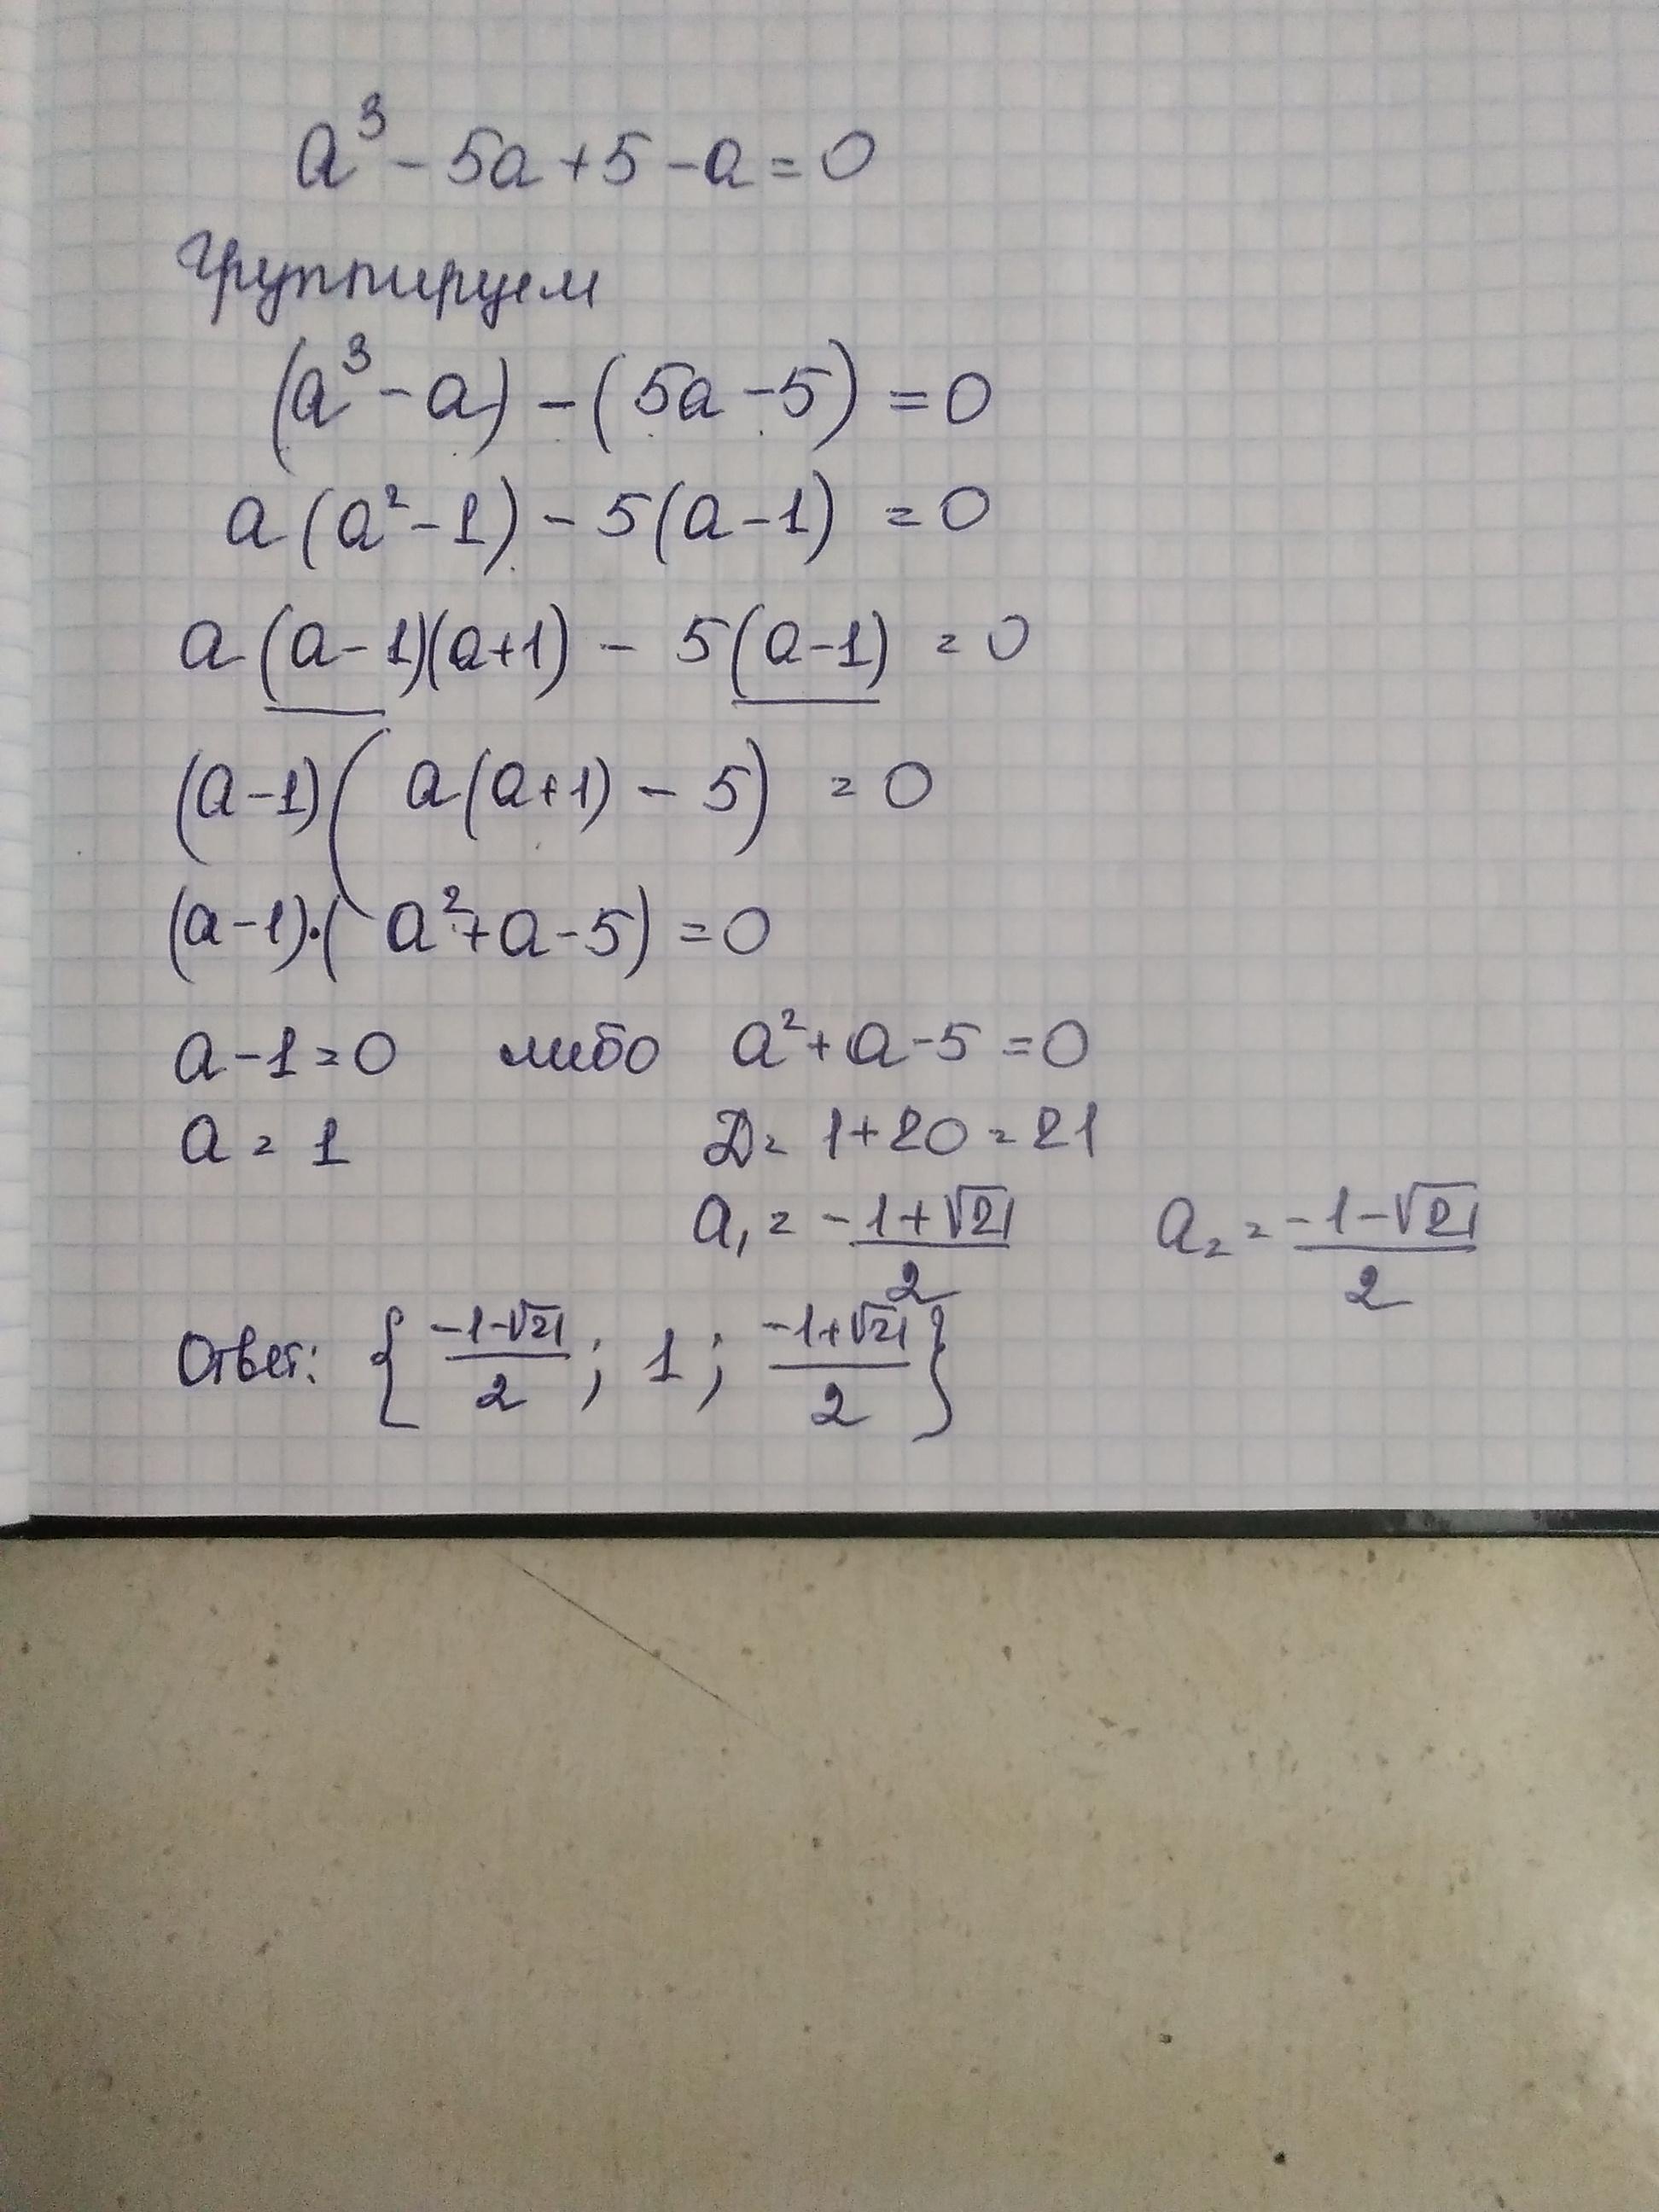 a³ - 5a + 5 - a = 0
Группируем
(a³ - a) - (5a - 5) = 0
a(a² - 1) - 5(a - 1) = 0
a(a - 1)(a + 1) - 5(a - 1) = 0
(a - 1)(a(a + 1) - 5) = 0
(a - 1)·(a² + a - 5) = 0
a - 1 = 0 либо a² + a - 5 = 0
a = 1 D = 1 + 20 = 21
a₁ = (-1 + √21)/2 a₂ = (-1 - √21)/2
Ответ: {(-1 - √21)/2; 1; (-1 + √21)/2}